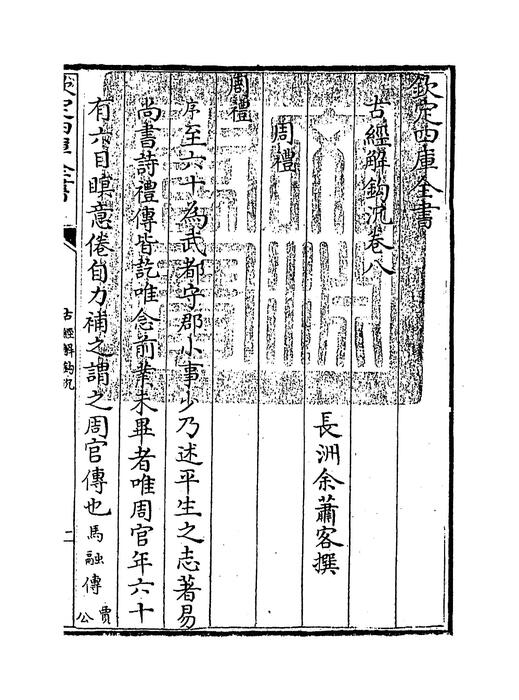 欽定四庫全書
古經解鈎沉卷八
長洲余蕭客撰
周禮
周禮
序至六十為武都守郡小事少乃述平生之志著易
尚書詩禮傳皆訖唯念前業未畢者唯周官年六十
有六目瞑意倦自力補之謂之周官傳也馬融傳
賈公
欽定四庫全書
古經解鈎沉
二